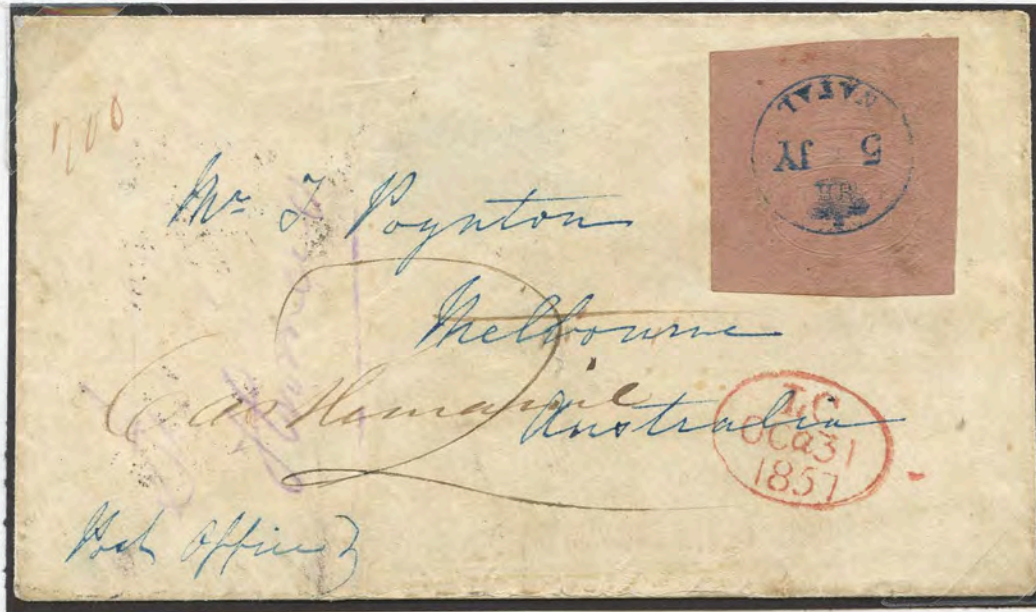 700
NATAL
5 JY
Mr. J Poynton
Melbourne
Castlemaine
Australia
LC
OC 31
1857
Post Office